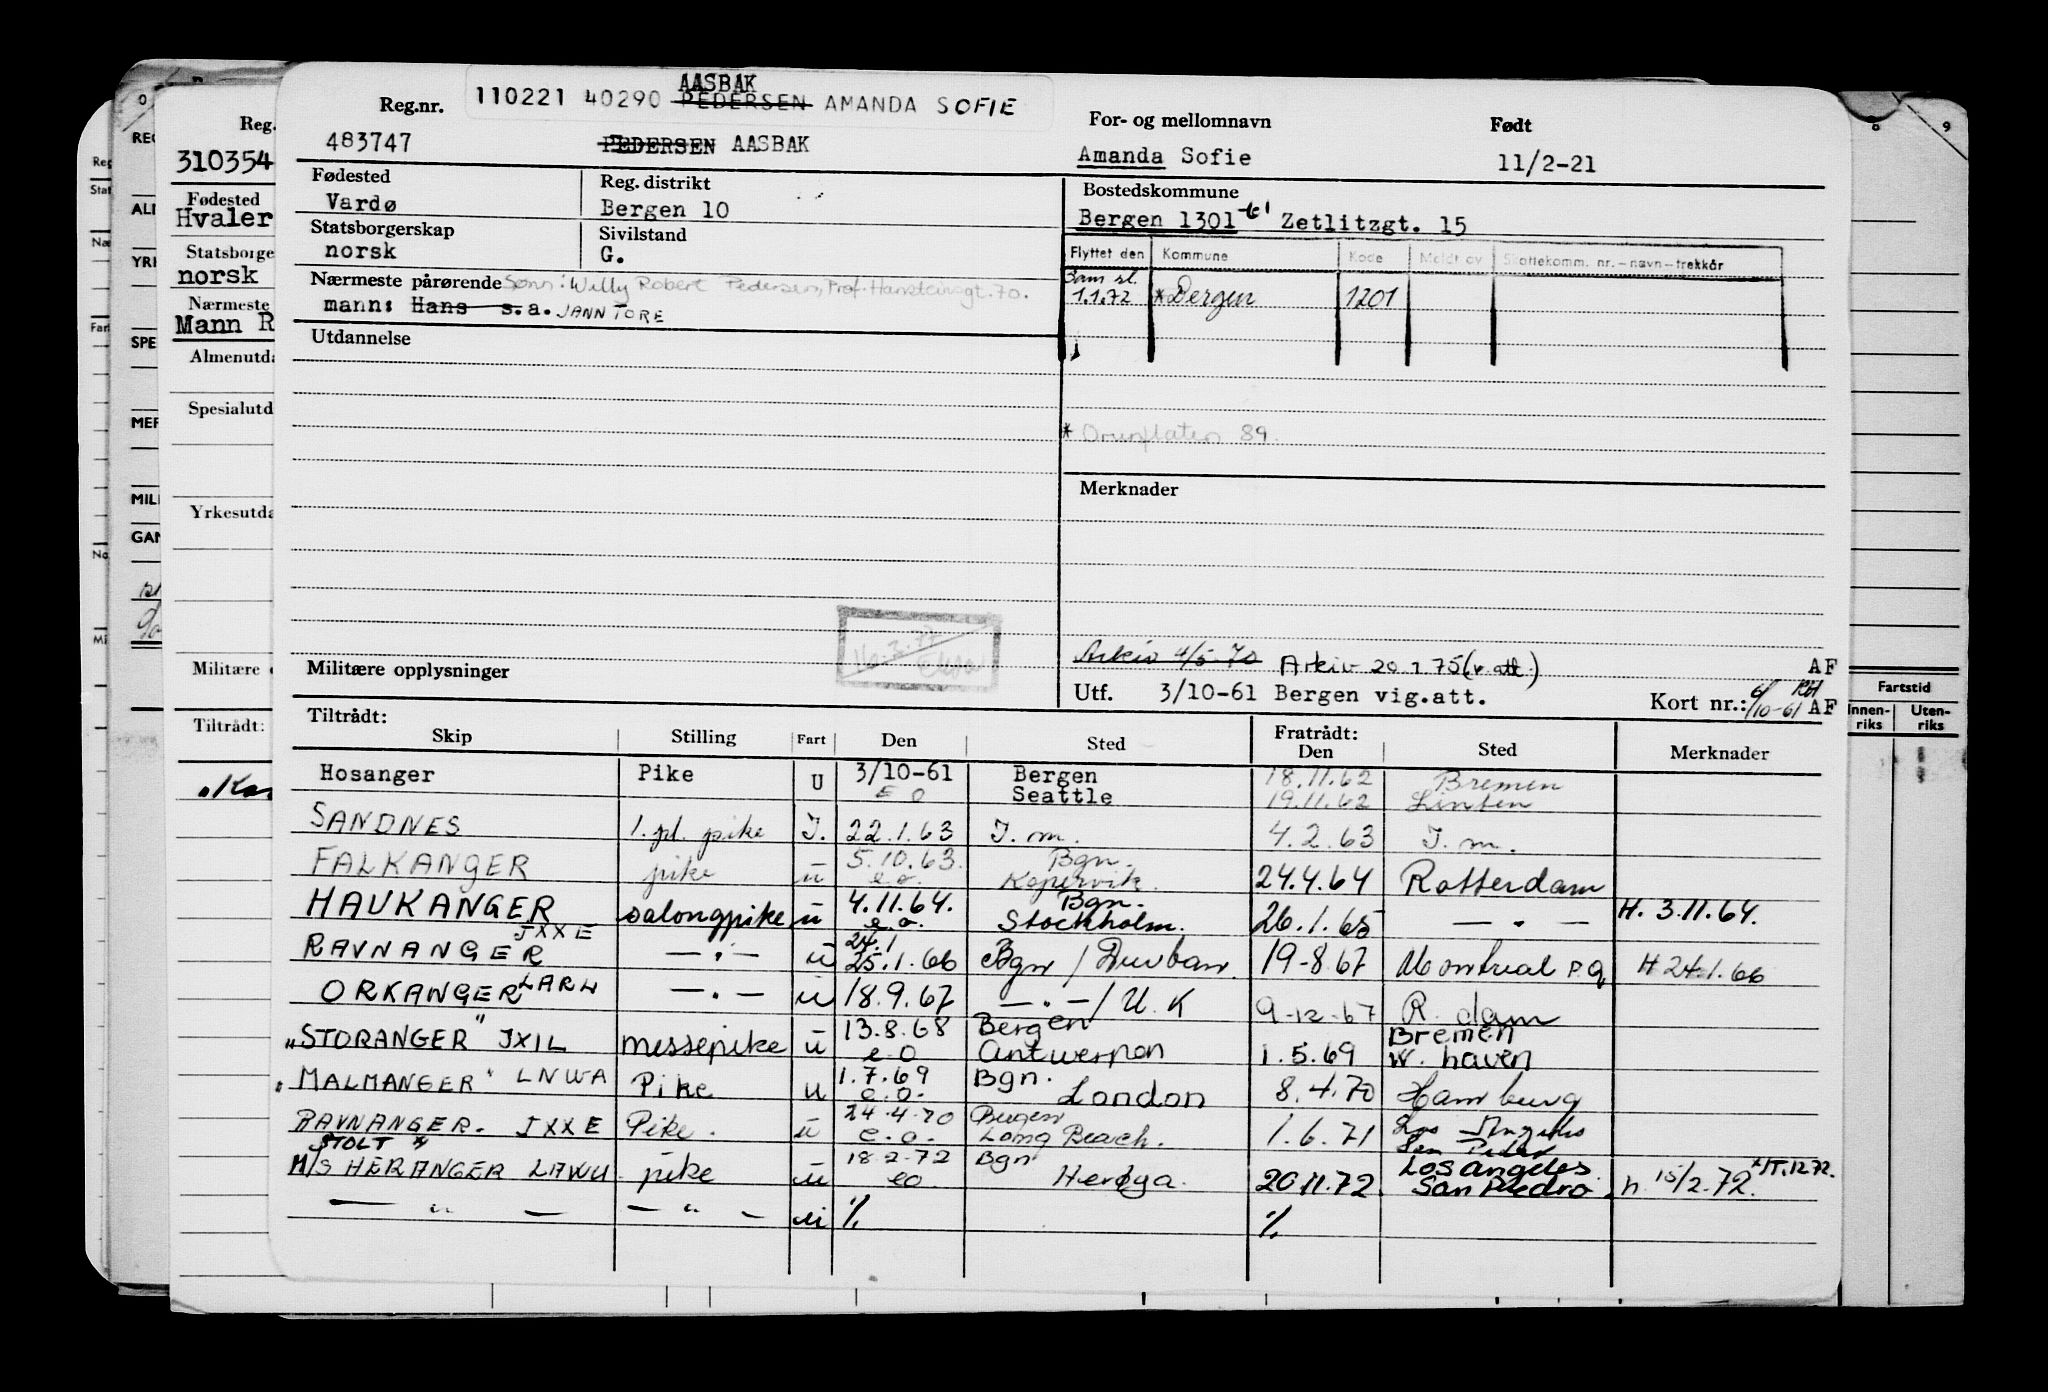 AASBAK
Reg.nr. 110221 40290 PEDERSEN AMANDA SOFIE
483747 PEDERSEN AASBAK
For- og mellomnavn Født
Amanda Sofie 11/2-21
Fødested Reg. distrikt
Vardø Bergen 10
Statsborgerskap Sivilstand
norsk G.
Nærmeste pårørende Sønn: Willy Robert Pedersen, Prof. Hansteinsgt. 70.
mann: Hans s.a. JANN TORE
Utdannelse
Militære opplysninger
Bostedskommune
Bergen 1301 Zetlitzgt. 15
Flyttet den Kommune Kode Meldt av Skattekomm. nr.-navn-trekkår
1.1.72 *Bergen 1201
89.
Merknader
Arkiv 4/5-70 Arkiv 20.1.75 (v. att.) AF
Utf. 3/10-61 Bergen vig.att. Kort nr.: 6/10-61 AF
Tiltrådt: Fratrådt:
Skip Stilling Fart Den Sted Den Sted Merknader
Hosanger Pike U 3/10-61 Bergen 18.11.62 Bremen
E O Seattle 19.11.62
SANDNES 1. pl. pike I. 22.1.63 I. m. 4.2.63 I. m.
FALKANGER pike u 5.10.63. Bgn.
e.o. Kopervik. 24.4.64 Rotterdam
HAUKANGER salongpike u 4.11.64. Bgn. H. 3.11.64.
e.o. Stockholm. 26.1.65 — " —
RAVNANGER JXXE — " — u 24.1
25.1.66 Bgn / Durban. 19-8.67 Montreal P.Q H 24.1.66
ORKANGER LARW — " — u 18.9.67 — " — / U.K 9-12-67 R. dam
"STORANGER" JXIL messepike u 13.8.68 Bergen Bremen
e o Antwerpen 1.5.69 W. haven
"MALMANGER" LNWA Pike u 1.7.69 Bgn.
e.o. London 8.4.70 Hamburg
RAVNANGER. JXXE Pike. u 24.4.70 Bergen Los Angeles
e.o. Long Beach. 1.6.71 San Pedro
STOLT
M/S HERANGER LAWU pike u 18.2.72 Bgn Los Angeles
eo Herøya. 20.11.72. San Pedro. h. 15/2.72.
— " — — " — u % %
Reg.
310354
Fødested
Hvaler
Statsborge
norsk
Nærmeste
Mann R
Almenutda
Spesialutd
Yrkesutda
Militære
Tiltrådt:
REG
ALM
YRK
SPE
MER
MILI
GAN
Reg
Stat
Næ
Mi
9
Fartstid
Innen-riks Uten-riks